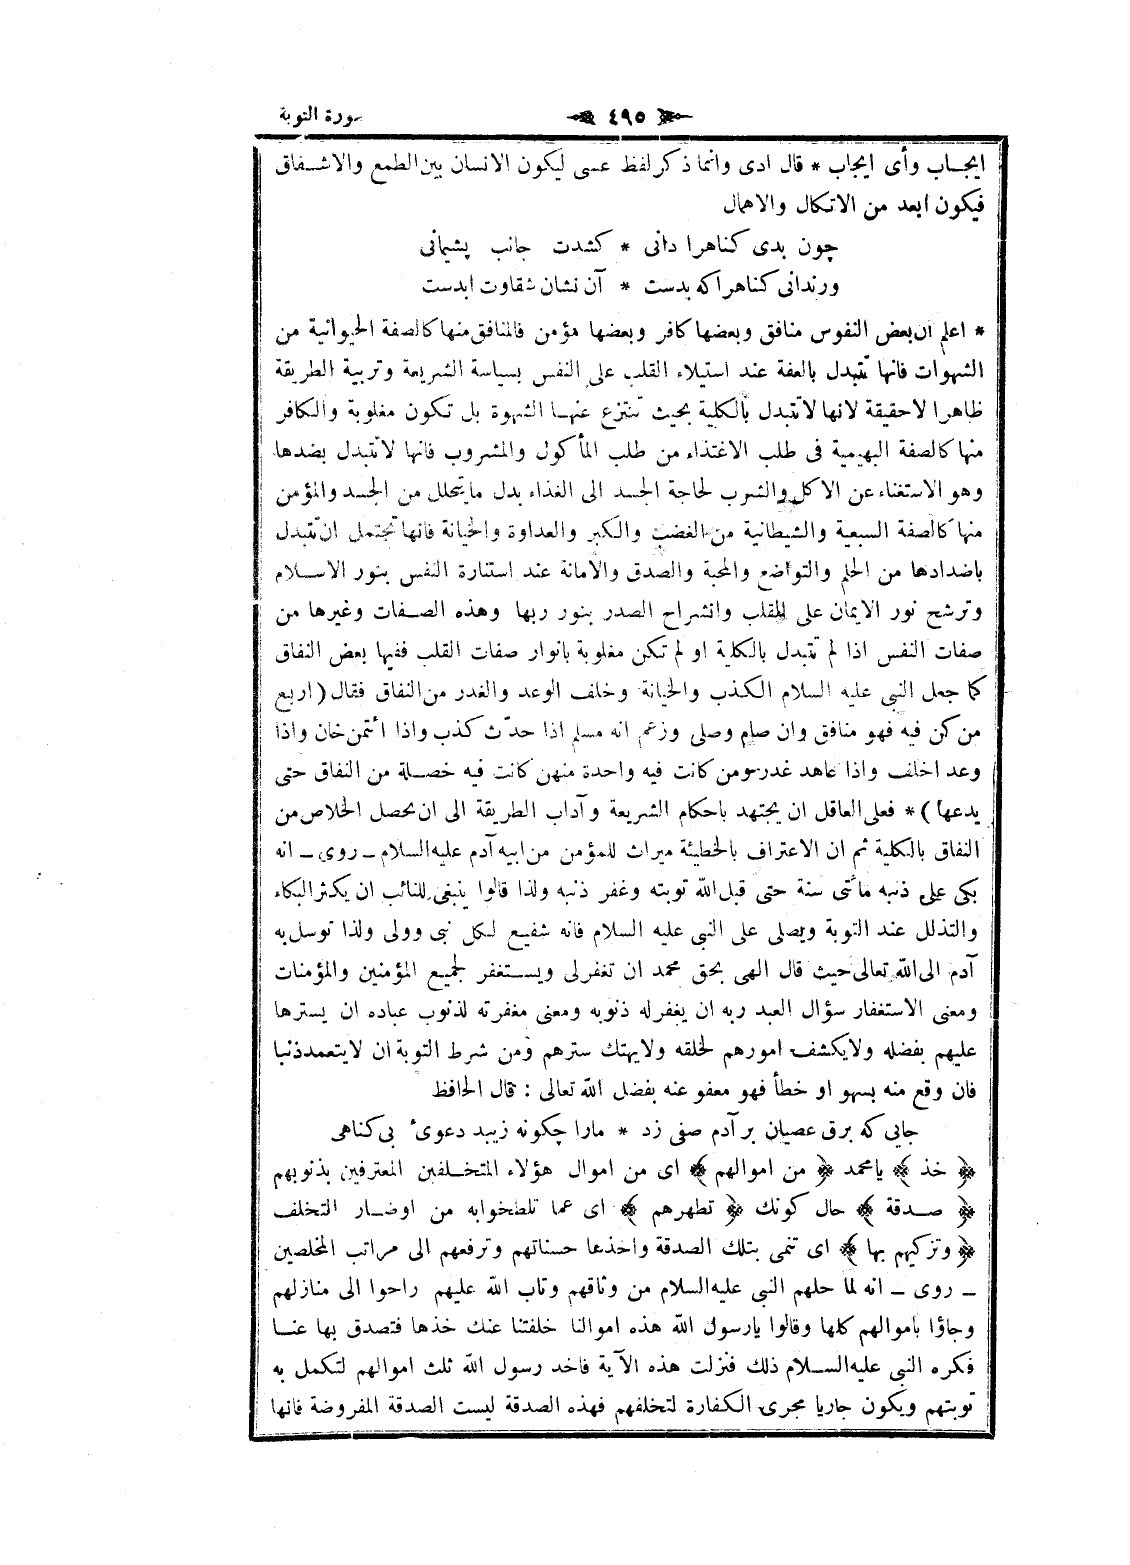 سورة التوبة
٤٩٥
ايجاب وأى ايجاب * قال ادى وانما ذكر لفظ عسى ليكون الانسان بين الطمع والاشفاق
فيكون ابعد من الاتكال والاهمال
چون بدى كناهرا دانى * كشدت جانب پشيمانى
ورندانى كناهرا كه بدست * آن نشان شقاوت ابدست
* اعلم ان بعض النفوس منافق وبعضها كافر وبعضها مؤمن فالمنافق منها كالصفة الحيوانية من
الشهوات فانها تتبدل بالعفة عند استيلاء القلب على النفس بسياسة الشريعة وتربية الطريقة
ظاهرا لاحقيقة لانها لاتتبدل بالكلية بحيث تنتزع عنها الشهوة بل تكون مغلوبة والكافر
منها كالصفة البهيمية فى طلب الاغتذاء من طلب المأكول والمشروب فانها لاتتبدل بضدها
وهو الاستغناء عن الاكل والشرب لحاجة الجسد الى الغذاء بدل مايتحلل من الجسد والمؤمن
منها كالصفة السبعية والشيطانية من الغضب والكبر والعداوة والخيانة فانها تحتمل ان تتبدل
باضدادها من الحلم والتواضع والمحبة والصدق والامانة عند استنارة النفس بنور الاسلام
وترشح نور الايمان على القلب وانشراح الصدر بنور ربها وهذه الصفات وغيرها من
صفات النفس اذا لم تتبدل بالكلية او لم تكن مغلوبة بانوار صفات القلب ففيها بعض النفاق
كما جعل النبى عليه السلام الكذب والخيانة وخلف الوعد والغدر من النفاق فقال ( اربع
من كن فيه فهو منافق وان صام وصلى وزعم انه مسلم اذا حدّث كذب واذا ائتمن خان واذا
وعد اخلف واذا عاهد غدر ومن كانت فيه واحدة منهن كانت فيه خصلة من النفاق حتى
يدعها ) * فعلى العاقل ان يجتهد باحكام الشريعة وآداب الطريقة الى ان يحصل الخلاص من
النفاق بالكلية ثم ان الاعتراف بالخطيئة ميراث للمؤمن من ابيه آدم عليه السلام ـ روى ـ انه
بكى على ذنبه مائتى سنة حتى قبل الله توبته وغفر ذنبه ولذا قالوا ينبغى للتائب ان يكثر البكاء
والتذلل عند التوبة ويصلى على النبى عليه السلام فانه شفيع لكل نبى وولى ولذا توسل به
آدم الى الله تعالى حيث قال الهى بحق محمد ان تغفرلى ويستغفر لجميع المؤمنين والمؤمنات
ومعنى الاستغفار سؤال العبد ربه ان يغفرله ذنوبه ومعنى مغفرته لذنوب عباده ان يسترها
عليهم بفضله ولايكشف امورهم لخلقه ولايهتك سترهم ومن شرط التوبة ان لايتعمد ذنبا
فان وقع منه بسهو او خطأ فهو معفو عنه بفضل الله تعالى : قال الحافظ
جايى كه برق عصيان بر آدم صفى زد * مارا چكونه زيبد دعوئ بى كناهى
﴿ خذ ﴾ يامحمد ﴿ من اموالهم ﴾ اى من اموال هؤلاء المتخلفين المعترفين بذنوبهم
﴿ صدقة ﴾ حال كونك ﴿ تطهرهم ﴾ اى عما تلطخوابه من اوضار التخلف
﴿ وتزكيهم بها ﴾ اى تنمى بتلك الصدقة واخذها حسناتهم وترفعهم الى مراتب المخلصين
ـ روى ـ انه لما حلهم النبى عليه السلام من وثاقهم وتاب الله عليهم راحوا الى منازلهم
وجاؤا باموالهم كلها وقالوا يارسول الله هذه اموالنا خلفتنا عنك خذها فتصدق بها عنا
فكره النبى عليه السلام ذلك فنزلت هذه الآية فاخد رسول الله ثلث اموالهم لتكمل به
توبتهم ويكون جاريا مجرى الكفارة لتخلفهم فهذه الصدقة ليست الصدقة المفروضة فانها